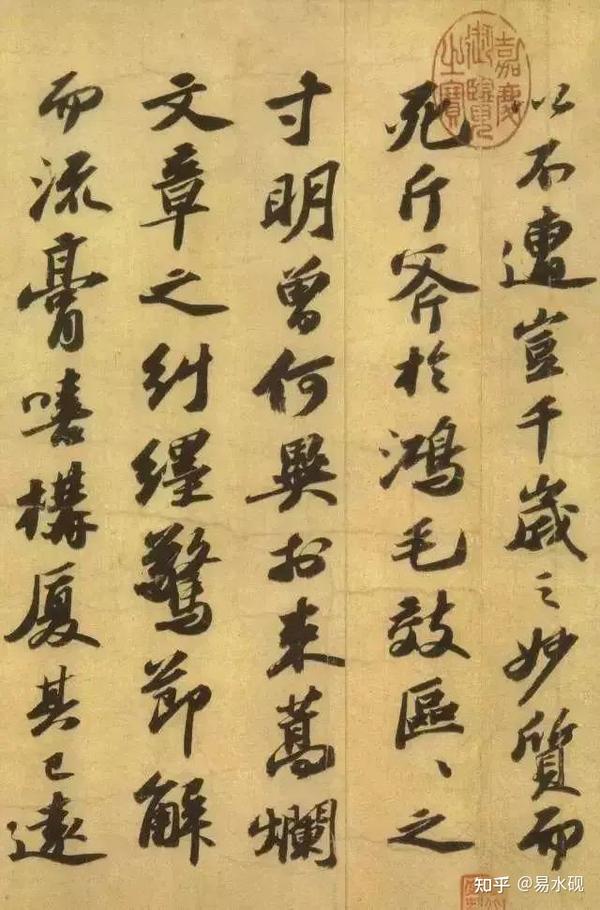 以不遭豈千歲之妙質而
死斤斧於鴻毛效區〻之
寸明曾何異於束蒿爛
文章之糾纆驚節解
而流膏嘻構廈其已遠
嘉慶御覽之寶
知乎 @易水砚